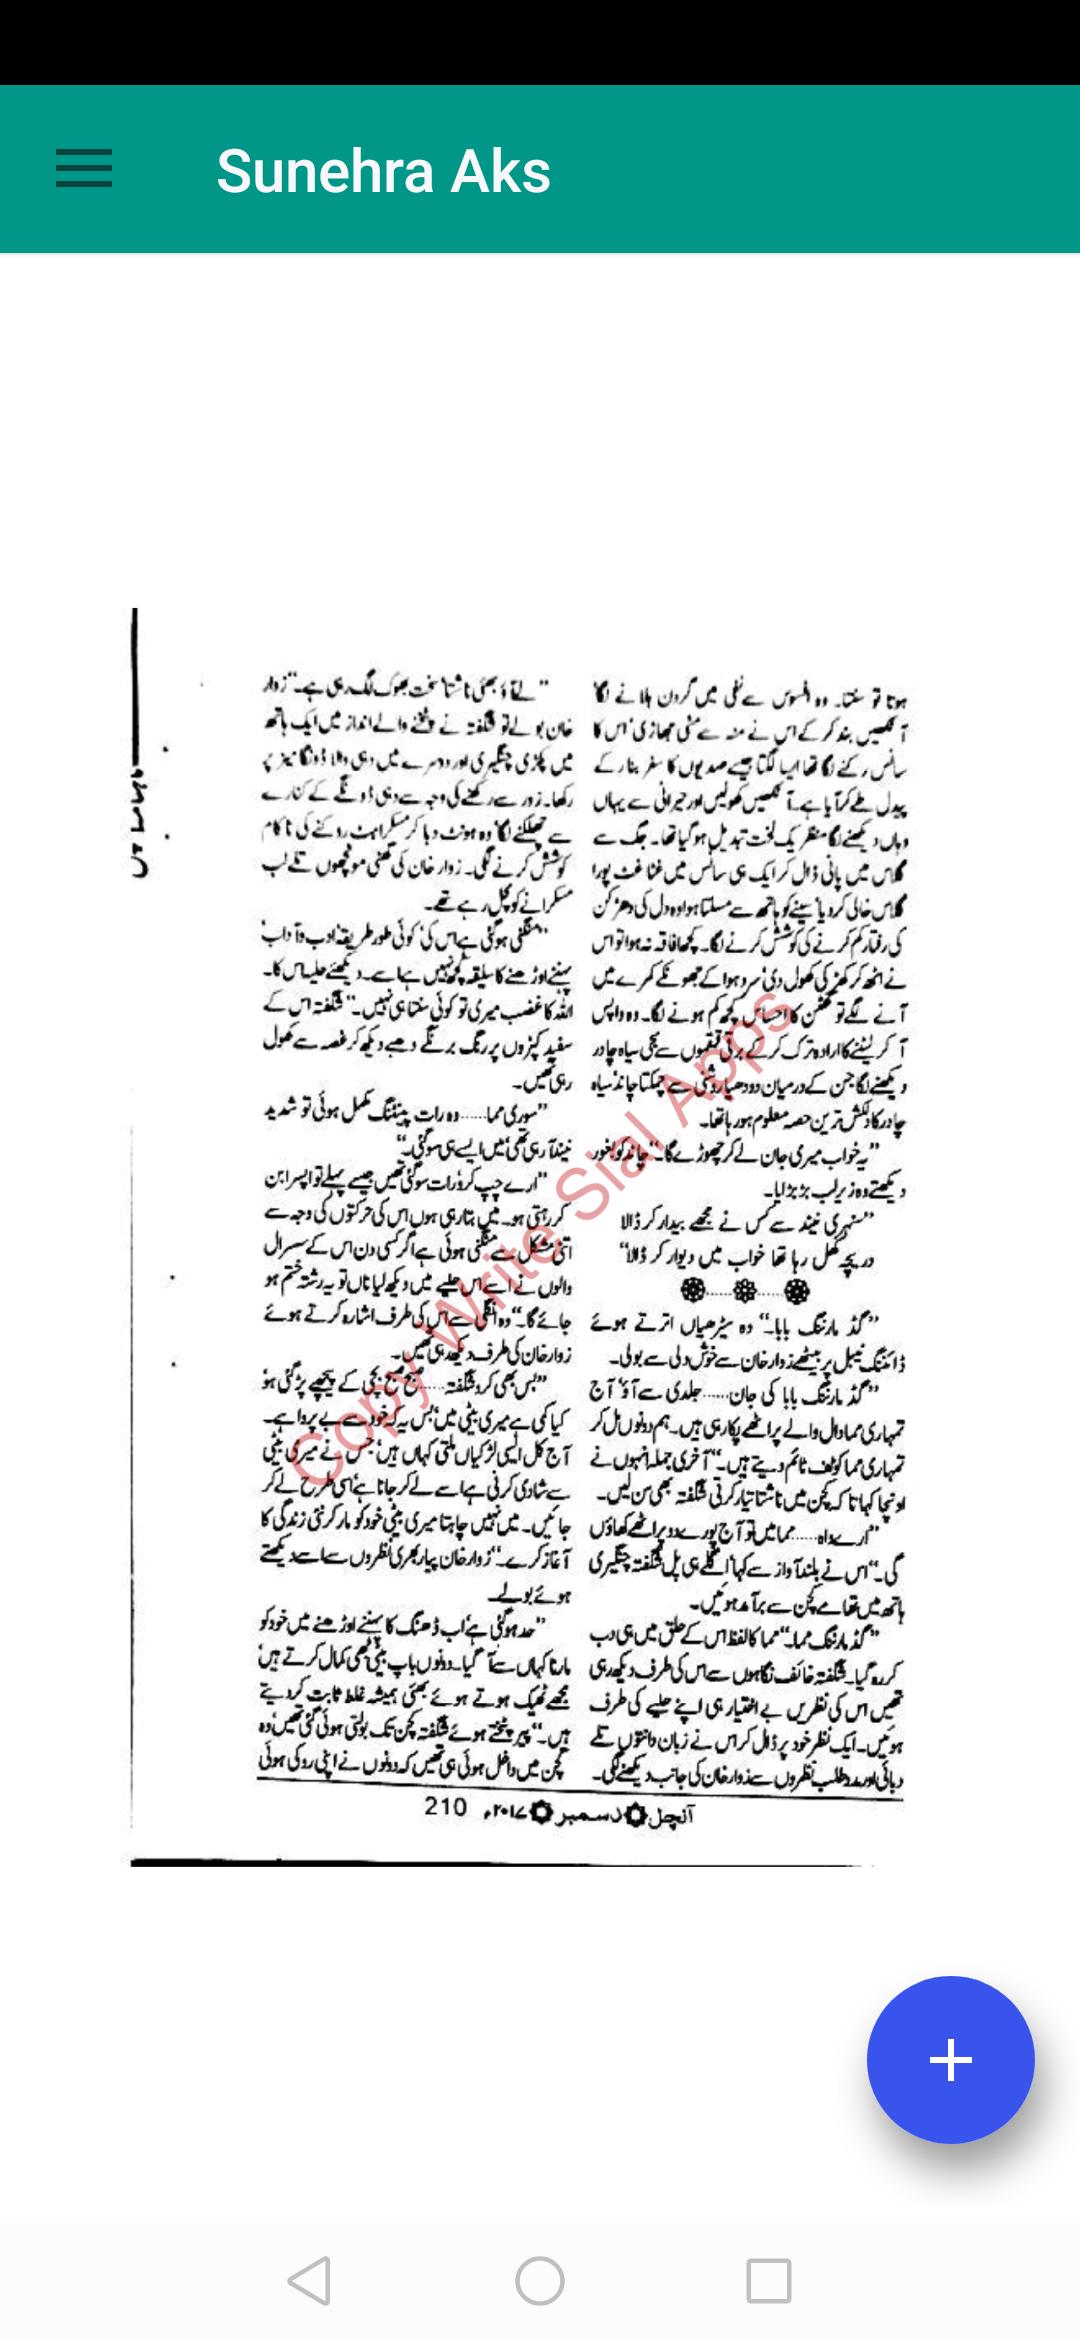 Sunehra Aks
ہوتا تو سنتا۔ وہ افسوس سے نفی میں گردن ہلانے لگا'
آنکھیں بند کرکے اس نے منہ سے کا
سانس رکنے لگا تھا ایسا لگتا جیسے صدیوں کا سفر بنا رکے
پیدل طے کر آیا ہے۔ آنکھیں کھولیں اور حیرانی سے یہاں
وہاں دیکھنے لگا منظر یک لخت تبدیل ہوگیا تھا۔ جگ سے
گلاس میں پانی ڈال کر ایک ہی سانس میں غٹا غٹ پورا
گلاس خالی کردیا' سینے کو ہاتھ سے مسلتا ہوا وہ دل کی دھڑکن
کی رفتار کم کرنے کی کوشش کرنے لگا۔ کچھ افاقہ نہ ہوا تو اس
نے اٹھ کر کھڑکی کھول دی' سرد ہوا کے جھونکے کمرے میں
آنے لگے تو گھٹن کا احساس کچھ کم ہونے لگا۔ وہ واپس
آ کر لیٹنے کا ارادہ ترک کرکے برقی قمقموں سے سجی سیاہ چادر
دیکھنے لگا جن کے درمیان دودھیا روشنی سے چمکتا چاند' سیاہ
چادر کا دلکش ترین حصہ معلوم ہورہا تھا۔
”یہ خواب میری جان لے کر چھوڑے گا۔“ چاند کو بغور
دیکھتے وہ زیر لب بڑبڑایا۔
”سنہری نیند سے کس نے مجھے بیدار کر ڈالا
دریچہ کھل رہا تھا خواب میں دیوار کر ڈالا“
”گڈ مارننگ بابا۔“ وہ سیڑھیاں اترتے ہوئے
ڈائننگ ٹیبل پر بیٹھے زوار خان سے خوش دلی سے بولی۔
”گڈ مارننگ بابا کی جان...... جلدی سے آؤ' آج
تمہاری مما دال والے پراٹھے پکا رہی ہیں۔ ہم دونوں مل کر
تمہاری مما کو ٹف ٹائم دیتے ہیں۔“ آخری جملہ انہوں نے
اونچا کہا تاکہ کچن میں ناشتا تیار کرتی شگفتہ بھی سن لیں۔
”ارے واہ...... مما میں تو آج پورے دو پراٹھے کھاؤں
گی۔“ اس نے بلند آواز سے کہا' اگلے ہی پل شگفتہ چنگیری
ہاتھ میں تھامے کچن سے برآمد ہوئیں۔
”گڈ مارننگ مما۔“ مما کا لفظ اس کے حلق میں ہی دب
کر رہ گیا۔ شگفتہ خائف نگاہوں سے اس کی طرف دیکھ رہی
تھیں اس کی نظریں بے اختیار ہی اپنے حلیے کی طرف
ہوئیں۔ ایک نظر خود پر ڈال کر اس نے زبان دانتوں تلے
دبائی اور مدد طلب نظروں سے زوار خان کی جانب دیکھنے لگی۔
”لے آؤ بھئی ناشتا' سخت بھوک لگ رہی ہے۔“ زوار
خان بولے تو شگفتہ نے پٹخنے والے انداز میں ایک ہاتھ
میں پکڑی چنگیری اور دوسرے میں دہی والا ڈونگا میز پر
رکھا۔ زور سے رکھنے کی وجہ سے دہی ڈونگے کے کنارے
سے چھلکنے لگا' وہ ہونٹ دبا کر مسکراہٹ روکنے کی ناکام
کوشش کرنے لگی۔ زوار خان کی گھنی مونچھوں تلے لب
مسکرانے کو مچل رہے تھے۔
”منگنی ہوگئی ہے اس کی' کوئی طور طریقہ' ادب و آداب'
پہننے اوڑھنے کا سلیقہ کچھ نہیں ہے اسے۔ دیکھئے حلیہ اس کا۔
اللہ کا غضب میری تو کوئی سنتا ہی نہیں۔“ شگفتہ اس کے
سفید کپڑوں پر رنگ برنگے دھبے دیکھ کر غصہ سے کھول
رہی تھیں۔
”سوری مما...... وہ رات پینٹنگ مکمل ہوئی تو شدید
نیند آرہی تھی' میں ایسے ہی سو گئی۔“
”ارے چپ کرو' رات سو گئی تھیں جیسے پہلے تو اپسرا بن
کر رہتی ہو۔ میں بتا رہی ہوں اس کی حرکتوں کی وجہ سے
اتنی مشکل سے منگنی ہوئی ہے اگر کسی دن اس کے سسرال
والوں نے اسے اس حلیے میں دیکھ لیا ناں تو یہ رشتہ ختم ہو
جائے گا۔“ وہ انگلی سے اس کی طرف اشارہ کرتے ہوئے
زوار خان کی طرف دیکھ رہی تھیں۔
”بس بھی کرو شگفتہ...... صبح صبح بچی کے پیچھے پڑ گئی ہو'
کیا کمی ہے میری بیٹی میں' بس یہ کہ خود سے بے پروا ہے۔
آج کل ایسی لڑکیاں ملتی کہاں ہیں' جس نے میری بیٹی
سے شادی کرنی ہے اسے لے کر جانا ہے' اسی طرح لے کر
جائیں۔ میں نہیں چاہتا میری بیٹی خود کو مار کر نئی زندگی کا
آغاز کرے۔“ زوار خان پیار بھری نظروں سے اسے دیکھتے
ہوئے بولے۔
”حد ہوگئی ہے' اب ڈھنگ کا پہننے اوڑھنے میں خود کو
مارنا کہاں سے آ گیا۔ دونوں باپ بیٹی بھی کمال کرتے ہیں'
مجھے ٹھیک ہوتے ہوئے بھی ہمیشہ غلط ثابت کردیتے
ہیں۔“ پیر پٹختے ہوئے شگفتہ کچن تک بولتی ہوئی گئی تھیں' وہ
کچن میں داخل ہوئی ہی تھیں کہ دونوں نے اپنی روکی ہوئی
آنچل دسمبر ۲۰۱۷ء 210
Copy Write Sial Apps